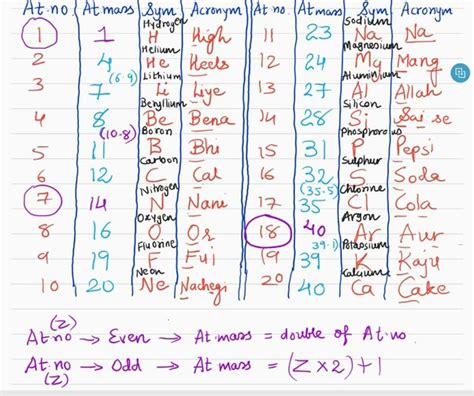 At.no. At mass Sym Acronym At no. At mass Sym Acronym
1 1 Hydrogen H High 11 23 Sodium Na Na
2 4 Helium He Heels 12 24 Magnesium Mg Mang
3 (6.9) 7 Lithium Li Liye 13 27 Aluminium Al Allah
4 8 Beryllium Be Bena 14 28 Silicon Si Sai se
5 (10.8) 11 Boron B Bhi 15 31 Phosphorous P Pepsi
6 12 Carbon C Cal 16 32 Sulphur S Soda
7 14 Nitrogen N Nani 17 (35.5) 35 Chlorine Cl Cola
8 16 Oxygen O Or 18 40 Argon Ar Aur
9 19 Fluorine F Fui 19 (39.1) 39 Potassium K Kaju
10 20 Neon Ne Nachegi 20 40 Calcium Ca Cake
At.no (Z) → Even → At.mass = double of At.no
At.no (Z) → Odd → At mass = (Z×2)+1